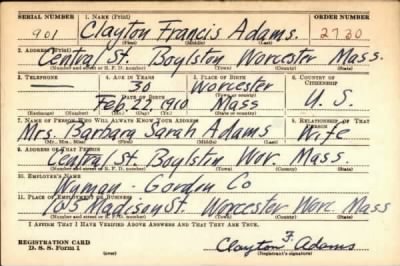 SERIAL NUMBER 1. NAME (Print) ORDER NUMBER
901 Clayton Francis Adams. 2730
(First) (Middle) (Last)
2. ADDRESS (Print)
Central St. Boylston Worcester Mass.
(Number and street or R. F. D. number) (Town) (County) (State)
3. TELEPHONE 4. AGE IN YEARS 5. PLACE OF BIRTH 6. COUNTRY OF CITIZENSHIP
— 30 Worcester
DATE OF BIRTH (Town or county)
Feb. 22, 1910 Mass U. S.
(Exchange) (Number) (Mo.) (Day) (Yr.) (State or country)
7. NAME OF PERSON WHO WILL ALWAYS KNOW YOUR ADDRESS 8. RELATIONSHIP OF THAT PERSON
Mrs. Barbara Sarah Adams Wife
(Mr., Mrs., Miss) (First) (Middle) (Last)
9. ADDRESS OF THAT PERSON
Central St. Boylston Wor. Mass.
(Number and street or R. F. D. number) (Town) (County) (State)
10. EMPLOYER'S NAME
Wyman-Gordon Co
11. PLACE OF EMPLOYMENT OR BUSINESS
105 Madison St. Worcester Worc. Mass
(Number and street or R. F. D. number) (Town) (County) (State)
I AFFIRM THAT I HAVE VERIFIED ABOVE ANSWERS AND THAT THEY ARE TRUE.
REGISTRATION CARD
D. S. S. Form 1 (over) Clayton F. Adams
(Registrant's signature)